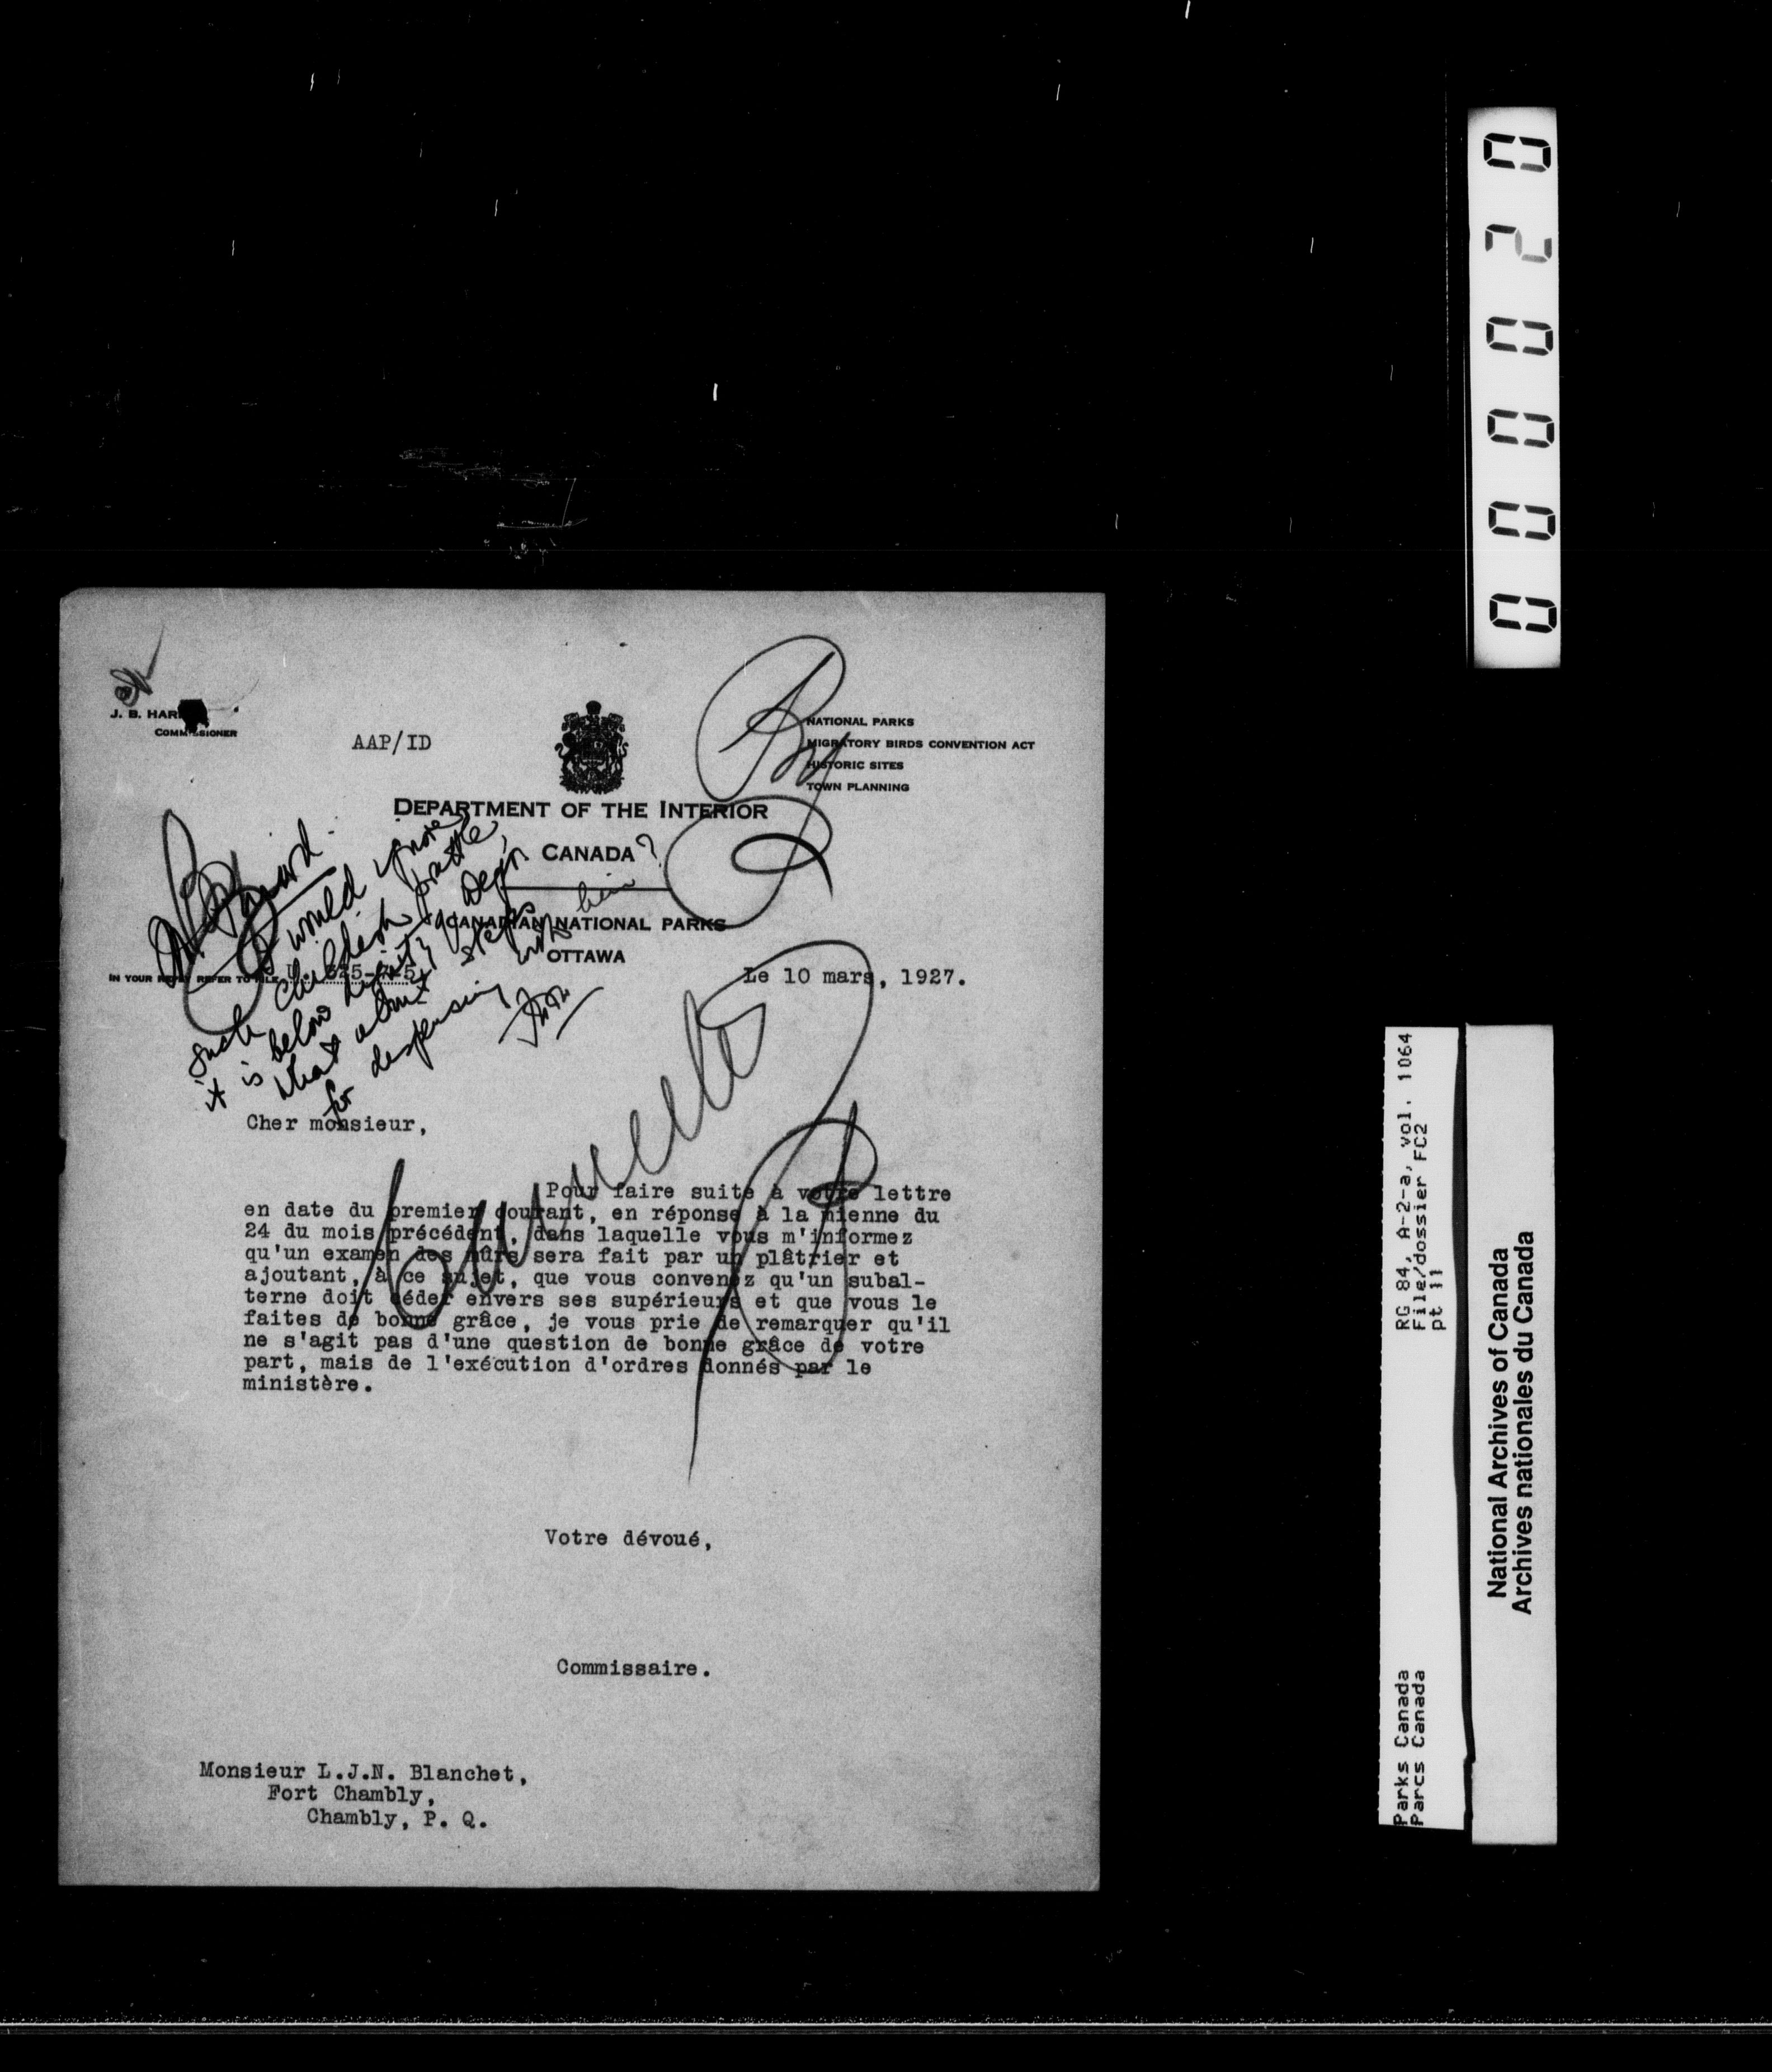 J. B. HAR
COMMISSIONER
AAP/ID
NATIONAL PARKS
MIGRATORY BIRDS CONVENTION ACT
HISTORIC SITES
TOWN PLANNING
DEPARTMENT OF THE INTERIOR
CANADA
CANADIAN NATIONAL PARKS
OTTAWA
IN YOUR REPLY REFER TO FILE
Le 10 mars, 1927.
I would ignore
such childish prattle,
it is below dignity of Dept.
What about steps
for dispensing with him?
Cancelled
Cher monsieur,
Pour faire suite à votre lettre
en date du premier courant, en réponse à la mienne du
24 du mois précédent, dans laquelle vous m'informez
qu'un examen des mûrs sera fait par un plâtrier et
ajoutant, à ce sujet, que vous convenez qu'un subal-
terne doit céder envers ses supérieurs et que vous le
faites de bonne grâce, je vous prie de remarquer qu'il
ne s'agit pas d'une question de bonne grâce de votre
part, mais de l'exécution d'ordres donnés par le
ministère.
Votre dévoué,
Commissaire.
Monsieur L.J.N. Blanchet,
Fort Chambly,
Chambly, P. Q.
000020
RG 84, A-2-a, vol. 1064
File/dossier FC2
pt 11
Parks Canada
Parcs Canada
National Archives of Canada
Archives nationales du Canada